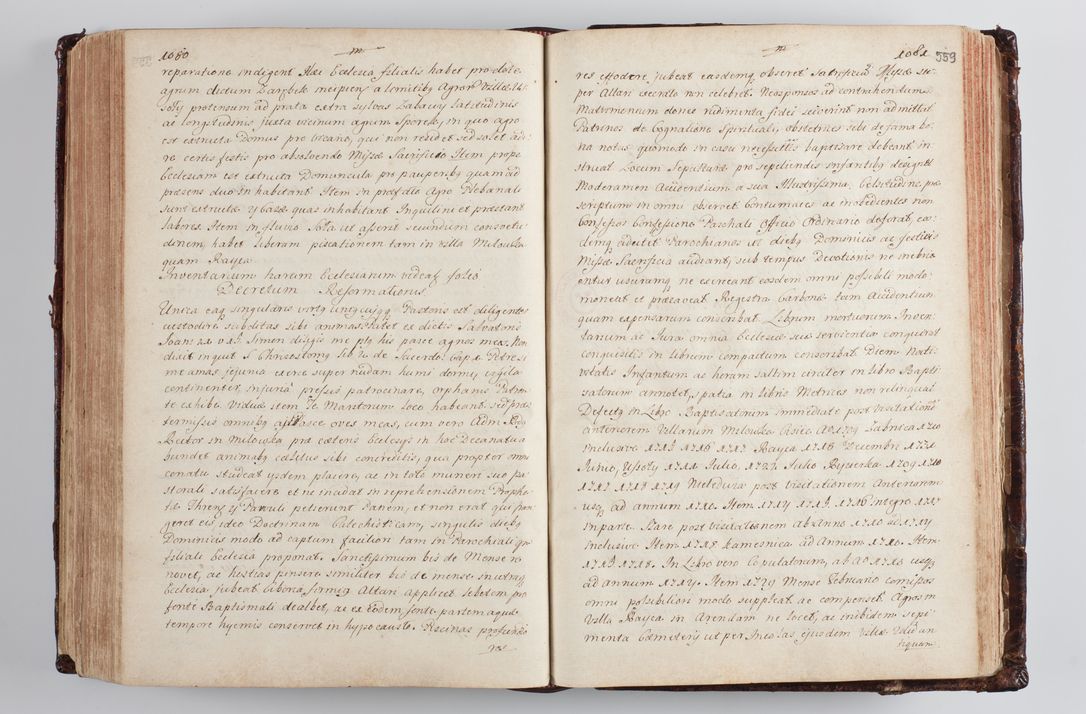 1080
reparatione indigent Haec Ecclesia filialis habet pro dote
agrum dictum incipien a limitibq Agror Villae
protensum ad prata extra sylvas Zabawy latitudinis
ac longitudinis juxta vicinum agrum in quo agro
est extructa Domus pro organo, qui non residet sed solet
re certis festis pro absolvendo Missae Sacrificio Item prope
Ecclesiam est extructa Domuncula pro pauperibq quam ad
praesens duo inhabitant Item in praedio Agro Plebanali
sunt extructae Casae quas inhabitant Inquilini et praestant
labores Item in fluvio Sola ut asseret secundum consuetu
dinem, habet liberam piscationem tam in villa Milowka
quam Rayca
Inventarium harum Ecclesiarum videas folio
Decretum Reformationis
Unica eaq singularis Pastoris est diligenter
custodire subditas sibi animas, habet ex dictis Salvatoris
Joan: 21 v 27. Simon diligis me pasce agnos meas,
inquit S Chrisostomg lib 2 de Sacerdo: Cap 2 Petre si
me amas, jejunia exerce super nudam humi dormi, vigila
continenter, injuria pressis patrocinare, orphanis Patrem
te exhibe Viduae item Te Maritorum loco habeant, sed prae
termissis omnibq pasce oves meas, cum vero Adm Rndg
Rector in Milowka prae caeteris Ecclesijs in hoc Decanatu a
bundet animabq caelitus sibi concreditis, qua propter omni
conatu studeat ijsdem placere, ac in toto muneri suo pa
storali satisfacere et ne incidat in reprehensionem Prophe
tae Thren: 4 Parvuli petierunt Panem, et non erat qui fran
geret eis ideo Doctrinam Catechisticam, singulis diebq
Dominicis modo ad captum facilion tam in Parochiali qm
filiali Ecclesia proponat. Sanctissimum bis de Mense re
novet, ac hostias pinsere similiter bis de mense in utraq
Ecclesia jubeat. Altari Applicet
fonte Baptismali dealbet, ac ex eodem fonte partem aquae
tempore hyemis conservet in hypocausto. Piscinas
1081
559
res effodere jubeat easdemq obseret Sacrificia Missae su
per Altari execrato non celebret. Neosponsos ad contrahendum
Matrimonium donec rudimenta fidei sciverint non admittat
Patrinos de Cognatione Spirituali, obstetrices sibi de fama bo
na notas quomodo in casu necessitatis baptisare debeant in
struat Locum Sepulturae pro sepeliendis infantibq designet
Moderamen Accidentium a sua Illustrissima Celsitudine prae
scriptum in omni observet Contumaces ac inobedientes non
Confessos Confessione Paschali Officio Ordinario deferat, eos
demq adcitet Parochianos ut diebq Dominicis ac festivis
Missae Sacrificia audiant, sub tempus Devotionis ne inebri
entur usuramq ne exerceant eosdem omni possibili modo
moneat et praecaveat Registra Carbonae tam Accidentium
quam expensarum conscribat. Librum mortuorum Inven
tarium ac Jura omnia Ecclesiae suae servientia conquirat
conquisitis in librum compactum conscribat. Diem Nati
vitatis Infantium ac horam saltim circiter in libro Bapti
satorum annotet, spatia in libris Metrices non relinquat
Defectq in Libro Baptisatorum immediate post visitationem
anteriorem Villarum Milowka, Cisiec A 1709 Zabnica 1710
inclusive 1715 1716 1717 Rayca 1718 Decembri 1721
Junio, Ujsoły 1711 Julio, 1727 Julio Rycerka 1709 1710
1717 1718 1719 Nieledwia post visitationem Anteriorem
usq ad annum 1710. Item 1714 1715. 1716 integro 1717
in parte. Szare post visitationem ab Anno 1710 ad 1714
inclusive Item 1718 Kamesnica ad Annum 1710. Item
1715 1718. In Libro vero Copulatorum, ab Ao 1710 usq
ad annum 1714. Item 1729 Mense Februario comissos
omni possibiliori modo suppleat ac compenset Agros in
Villa Rayca in Arendam ne locet, ac inibidem sepi
menta Coemeterij ut per Incolas ejusdem villae
tiquam